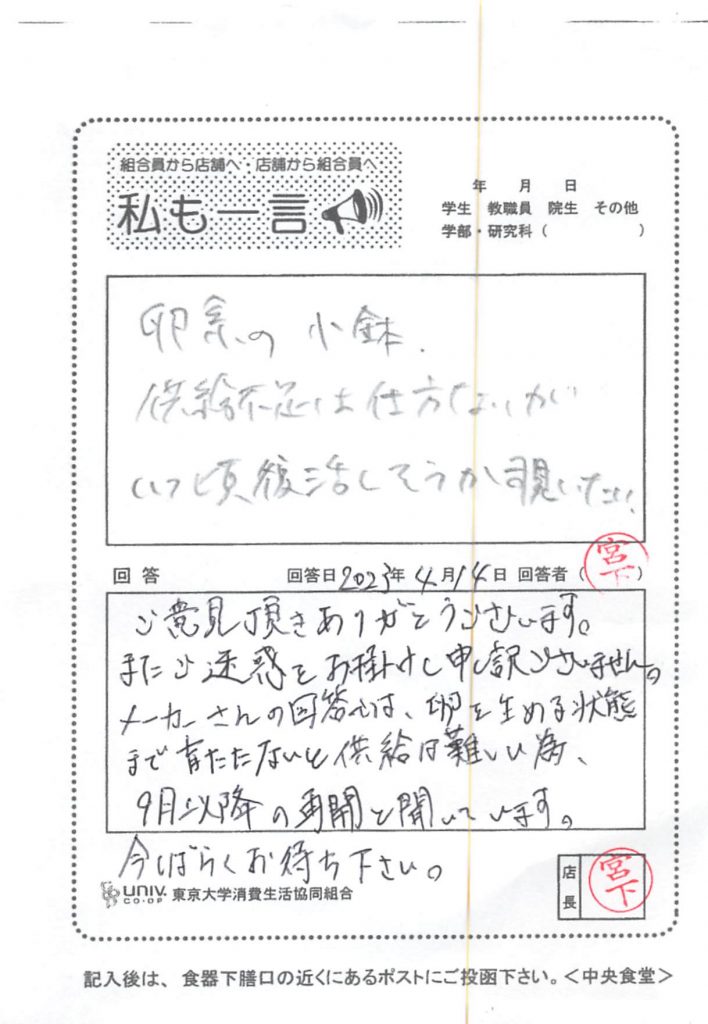 組合員から店舗へ・店舗から組合員へ
私も一言
年 月 日
学生 教職員 院生 その他
学部・研究科（ ）
卵系の小鉢.
供給不足は仕方ないが
いつ頃復活しそうか聞いたい.
回答 回答日2023年4月14日 回答者（宮下）
ご意見頂きありがとうございます。
またご迷惑をお掛けし申し訳ございません。
メーカーさんの回答では、卵を生める状態
まで育たたないと供給は難しい為、
9月以降の再開と聞いています。
今しばらくお待ち下さい。
UNIV.
CO-OP
東京大学消費生活協同組合
店長 宮下
記入後は、食器下膳口の近くにあるポストにご投函下さい。＜中央食堂＞